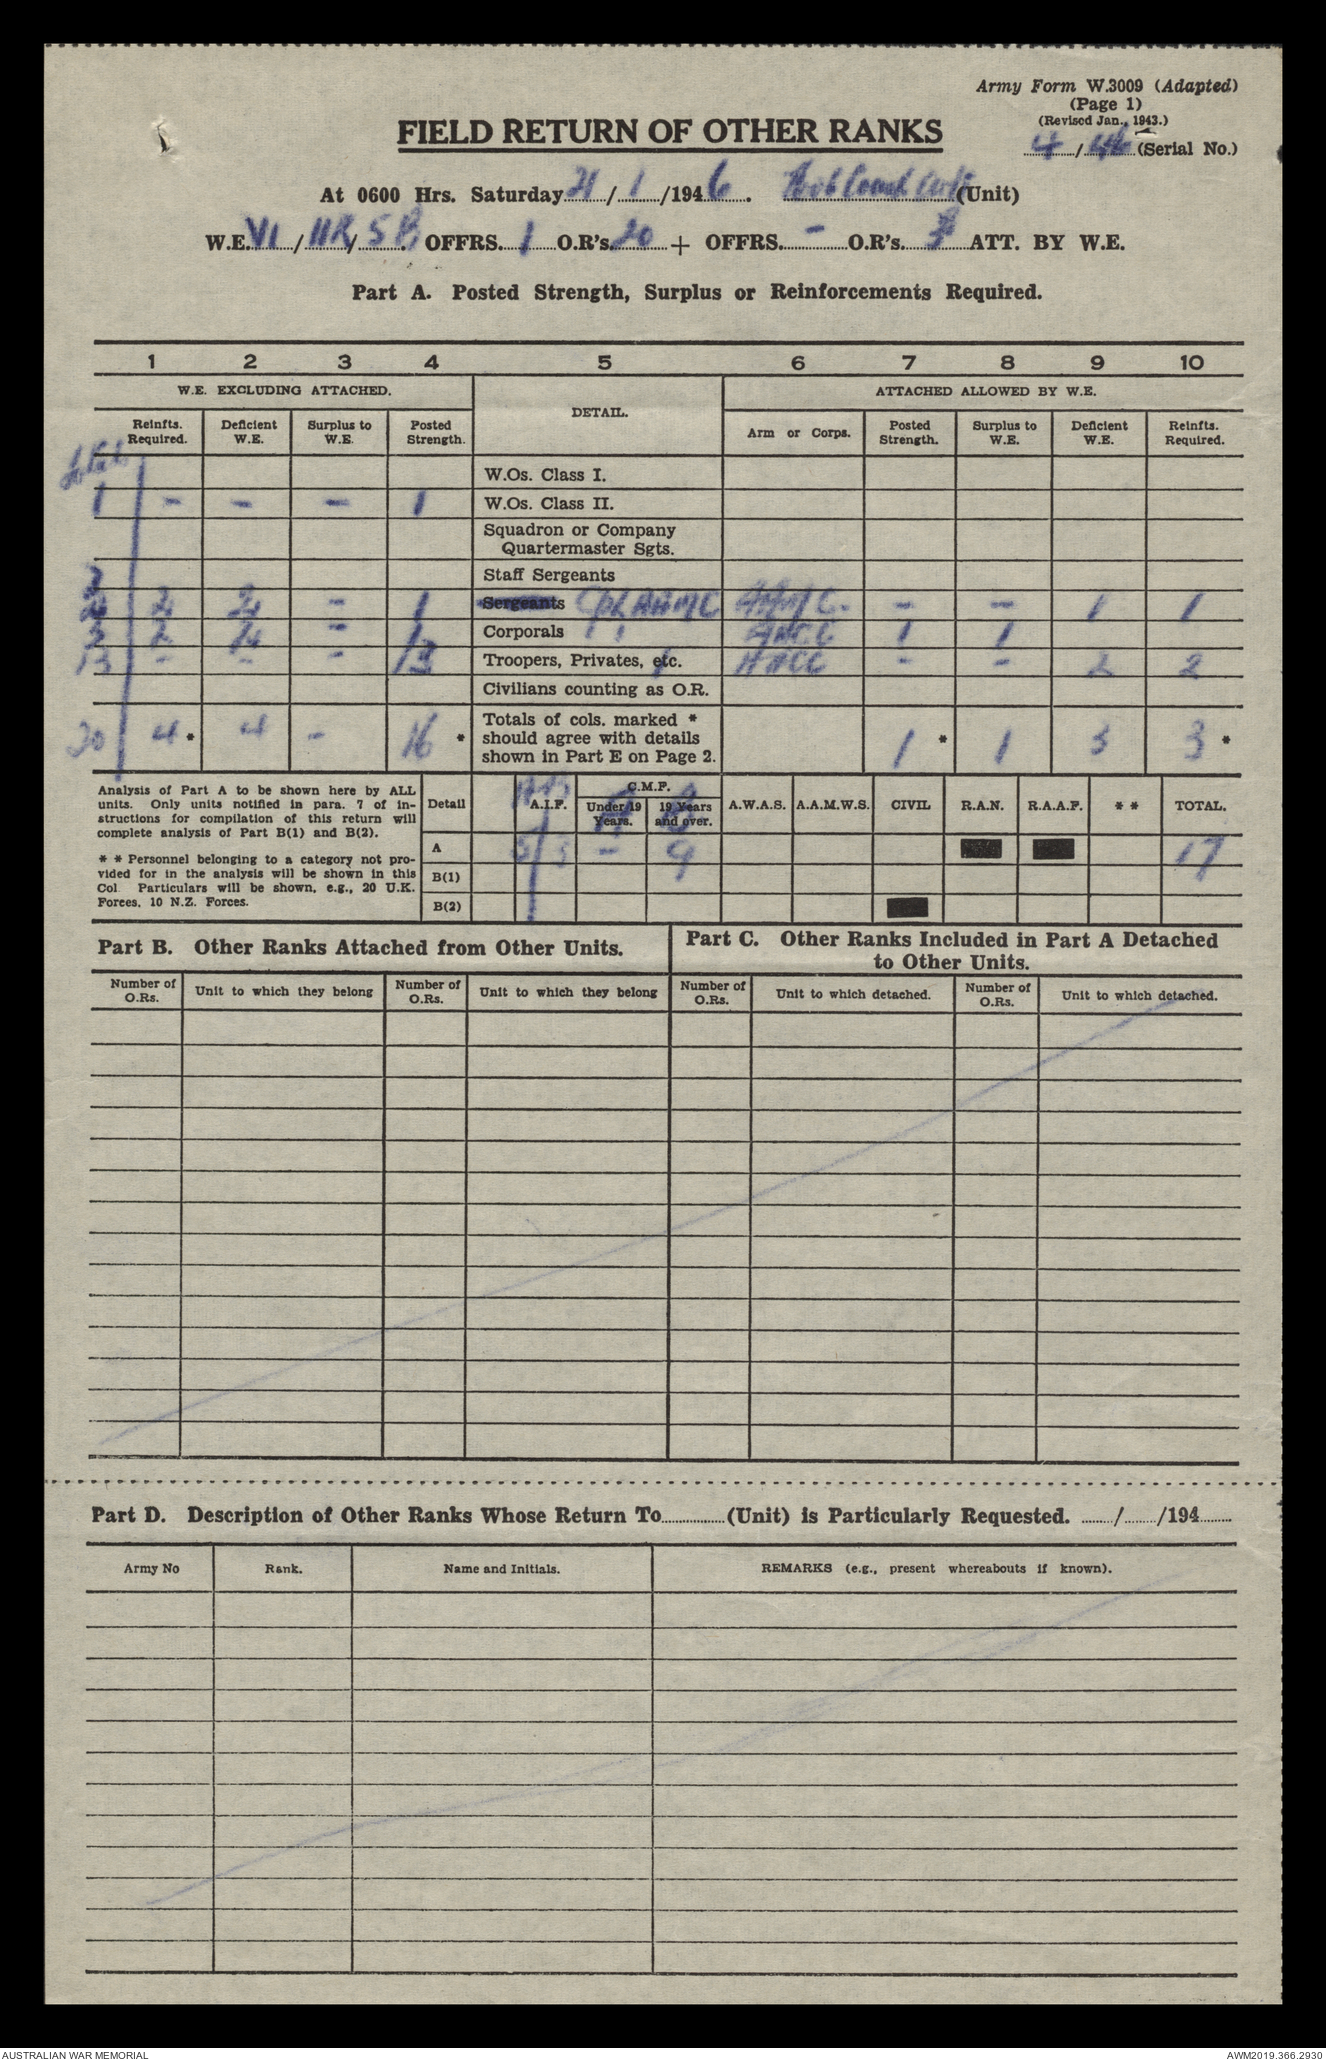 Army Form W.3009 (Adapted)
(Page 1)
(Revised Jan., 1943.)
FIELD RETURN OF OTHER RANKS
4/46 (Serial No.)
At 0600 Hrs. Saturday / 1 /1946. (Unit)
W.E. VI / IIR / 5 B, OFFRS. 1 O.R's. 20 + OFFRS. - O.R's. 3 ATT. BY W.E.
Part A. Posted Strength, Surplus or Reinforcements Required.
1 2 3 4 5 6 7 8 9 10
W.E. EXCLUDING ATTACHED. DETAIL. ATTACHED ALLOWED BY W.E.
Reinfts. Required. Deficient W.E. Surplus to W.E. Posted Strength. Arm or Corps. Posted Strength. Surplus to W.E. Deficient W.E. Reinfts. Required.
W.Os. Class I.
1 - - - 1 W.Os. Class II.
Squadron or Company
Quartermaster Sgts.
3 Staff Sergeants
2 2 - 1 Sergeants AAMC A.A.M.C. - - 1 1
2 2 2 - 1 Corporals AACC 1 1
13 - - - 13 Troopers, Privates, etc. AACC - - 2 2
Civilians counting as O.R.
20 4* 4 - 16 * Totals of cols. marked * 1 * 1 3 3 *
should agree with details
shown in Part E on Page 2.
Analysis of Part A to be shown here by ALL
units. Only units notified in para. 7 of in-
structions for compilation of this return will
complete analysis of Part B(1) and B(2).
* * Personnel belonging to a category not pro-
vided for in the analysis will be shown in this
Col. Particulars will be shown, e.g., 20 U.K.
Forces, 10 N.Z. Forces.
Detail A.I.F. C.M.F. Under 19 Years. 19 Years and over. A.W.A.S. A.A.M.W.S. CIVIL R.A.N. R.A.A.F. * * TOTAL.
A B
A 5 3 - 9 17
B(1)
B(2)
Part B. Other Ranks Attached from Other Units.
Part C. Other Ranks Included in Part A Detached
to Other Units.
Number of O.Rs. Unit to which they belong Number of O.Rs. Unit to which they belong Number of O.Rs. Unit to which detached. Number of O.Rs. Unit to which detached.
Part D. Description of Other Ranks Whose Return To............(Unit) is Particularly Requested. ....../....../194......
Army No Rank. Name and Initials. REMARKS (e.g., present whereabouts if known).
AUSTRALIAN WAR MEMORIAL AWM2019.366.2930